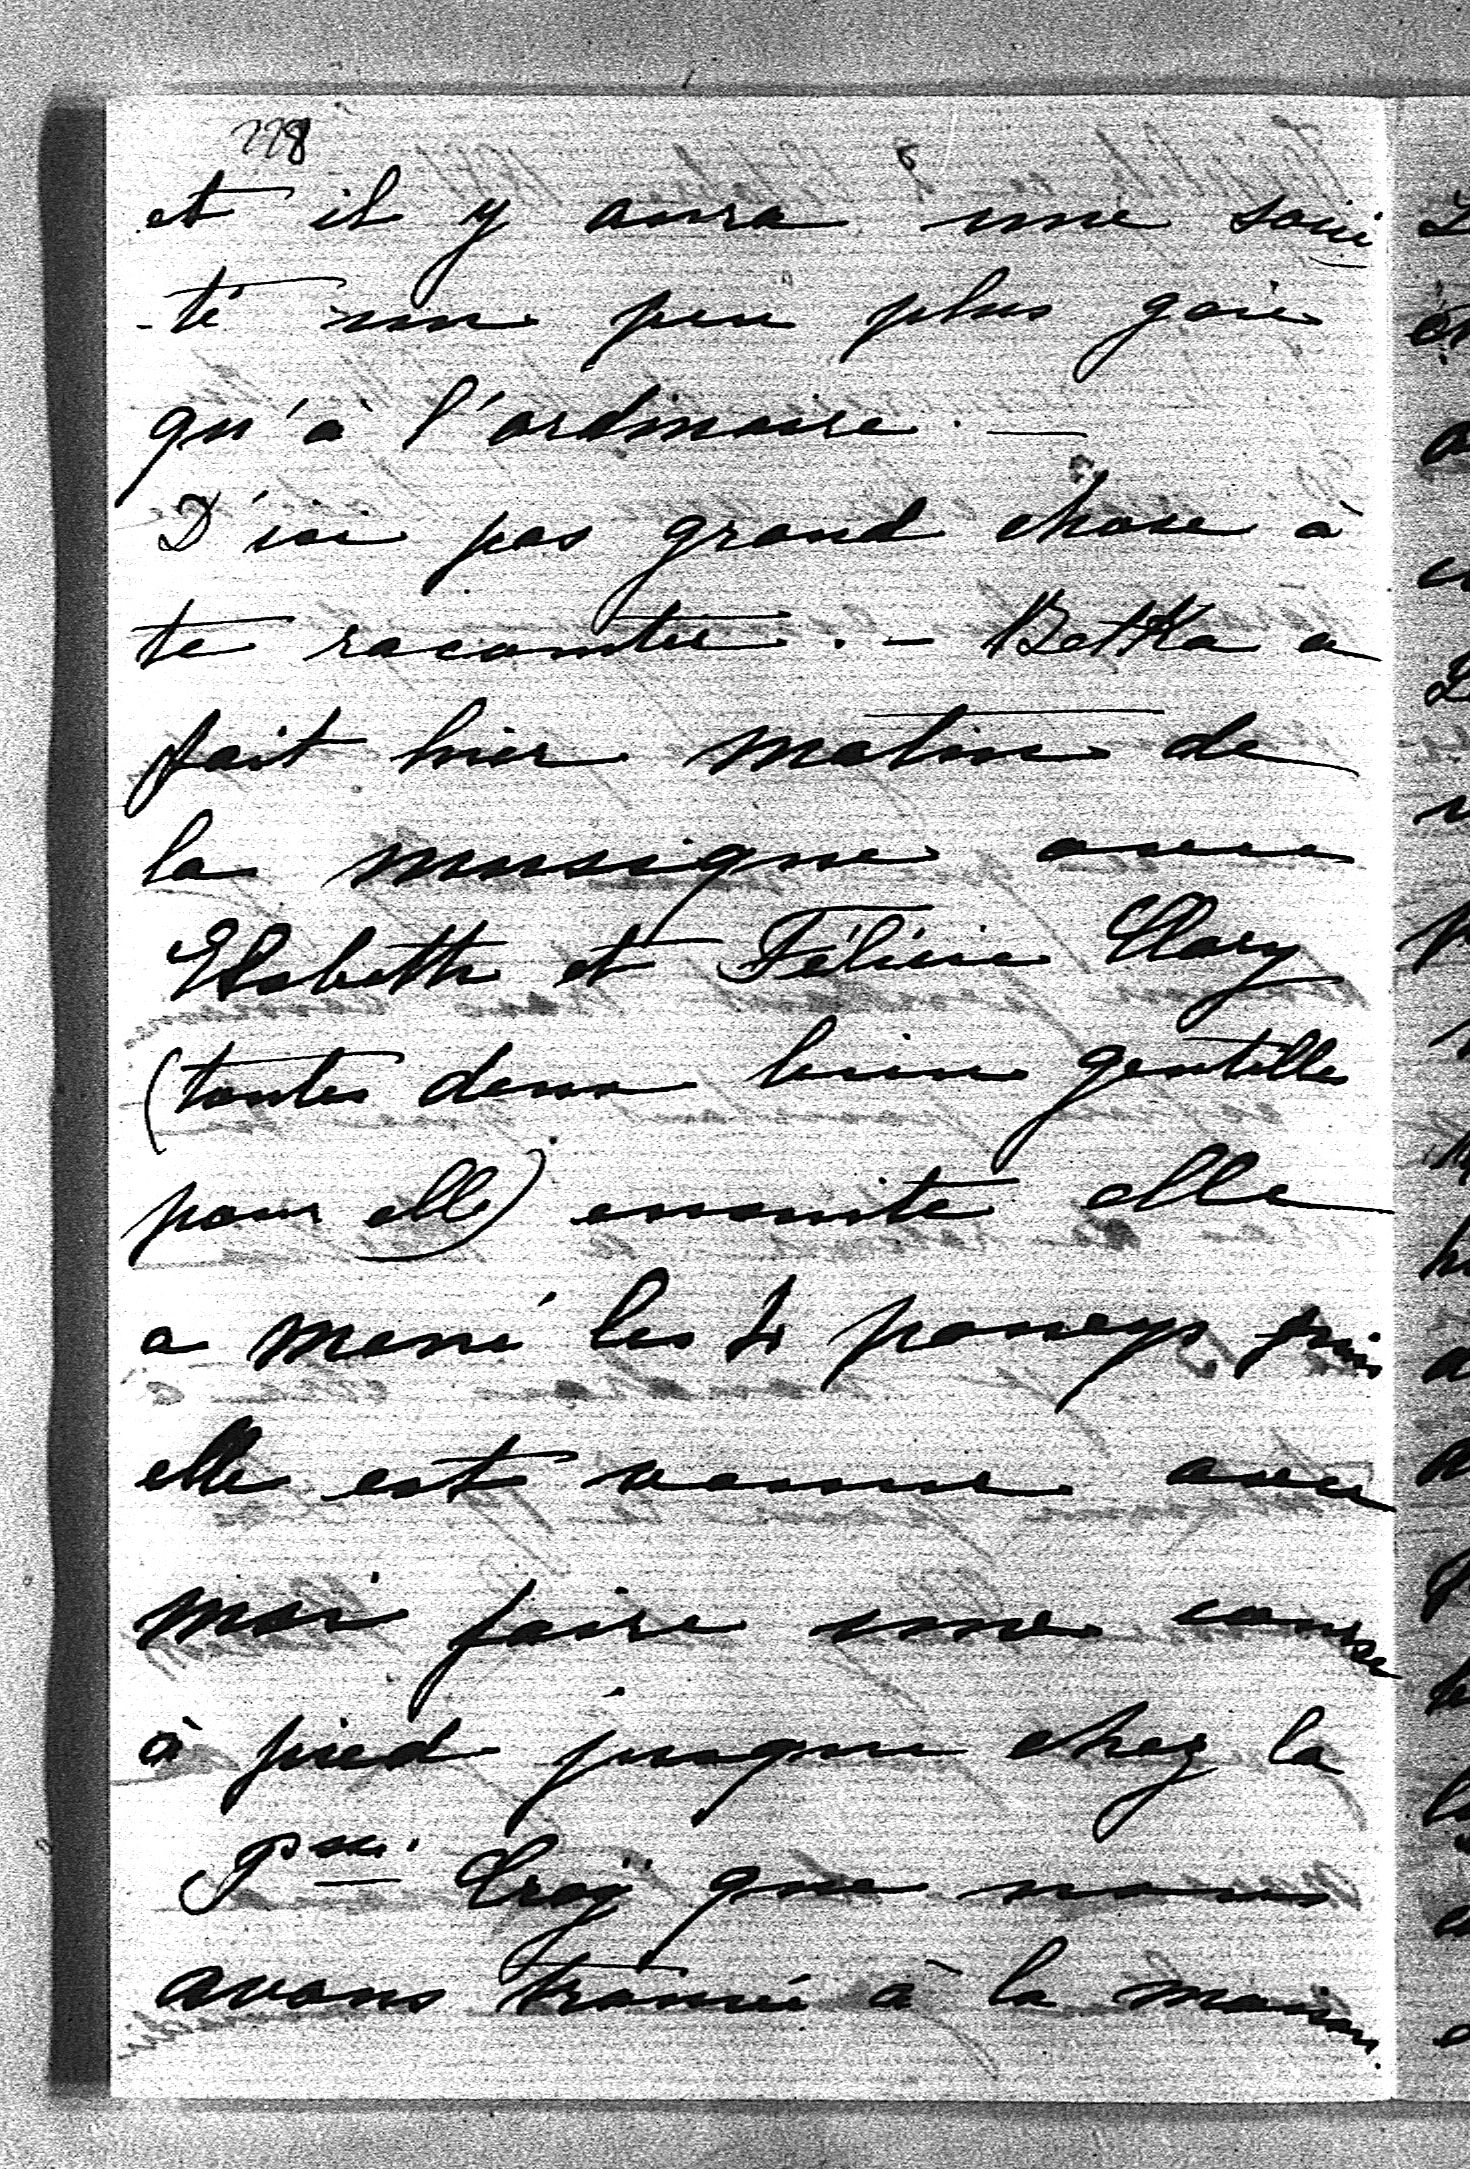 228
et il y aura une socié
-té un peu plus gaie
qu'à l'ordinaire. —
D'ici pas grand chose à
te raconter. – Betka a
fait hier matin de
la musique avec
Elsbeth et Félicie Clary
(toutes deux bien gentilles
pour elle) ensuite elle
a mené les 4 poneys puis
elle est venue avec
moi faire une course
à pied jusque chez la
Psse. Croÿ que nous
avons trouvé à la maison.